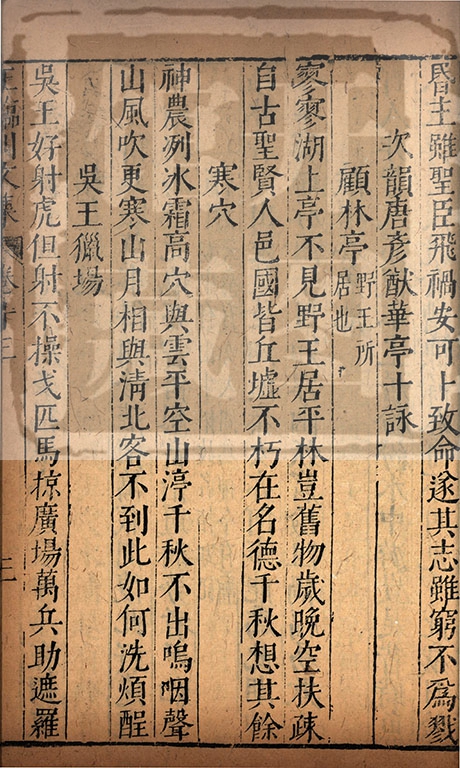 昏主雖聖臣飛禍安可卜致命遂其志雖窮不為戮
次韻唐彥猷華亭十詠
顧林亭野王所居也
寥寥湖上亭不見野王居平林豈舊物歲晚空扶疎
自古聖賢人邑國皆丘墟不朽在名德千秋想其餘
寒穴
神農冽冰霜高穴與雲平空山渟千秋不出嗚咽聲
山風吹更寒山月相與淸北客不到此如何洗煩酲
吳王獵場
吳王好射虎但射不操戈匹馬掠廣場萬兵助遮羅